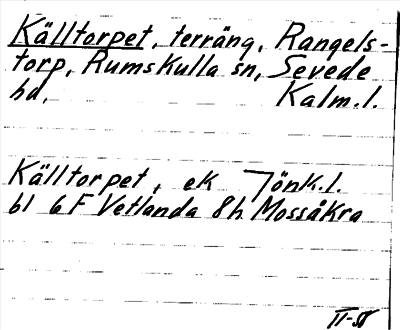 Källtorpet, terräng, Rangels-
torp, Rumskulla sn, Sevede
hd, Kalm.l.
Källtorpet, ek Jönk.l.
bl 6F Vetlanda 8h Mossåkra